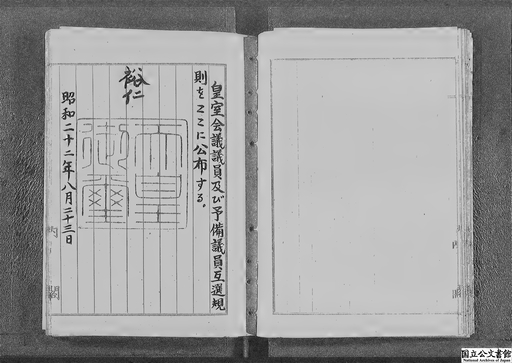 皇室会議議員及び予備議員互選規
則をここに公布する。
裕仁
天皇
御璽
昭和二十二年八月二十三日
内
閣
国立公文書館
National Archives of Japan